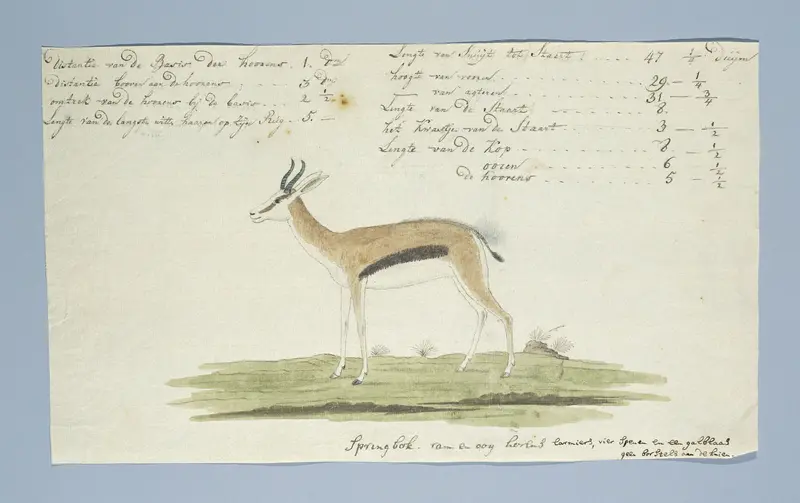 Distantie van de Basis der hoorens . 1. Dm
distantie boven aan de hoorens . 3 Dm
omtrek van de hoorens bij de basis . . . 2 1/2
Lengte van de langste witte haaren op zijn Rug . 5. —
Lengte van Snuijt tot Staart : . . . . 47 1/4 Duijm
hoogte van vooren . . . . . . . . 29 — 1/4
— van agteren . . . . . . . . 31 — 3/4
Lengte van de Staart . . . . . . 8.
het Kwastje van de Staart . . . . . . 3 — 1/2
Lengte van de Kop . . . . . . . . 8 — 1/2
ooren . . . . . . . . 6 1/2
de hoorens . . . . . . . . 5 — 1/2
Springbok. ram en ooy hoorns larmiers, vier Spenen en een galblaas
geen borstels aan de knien.